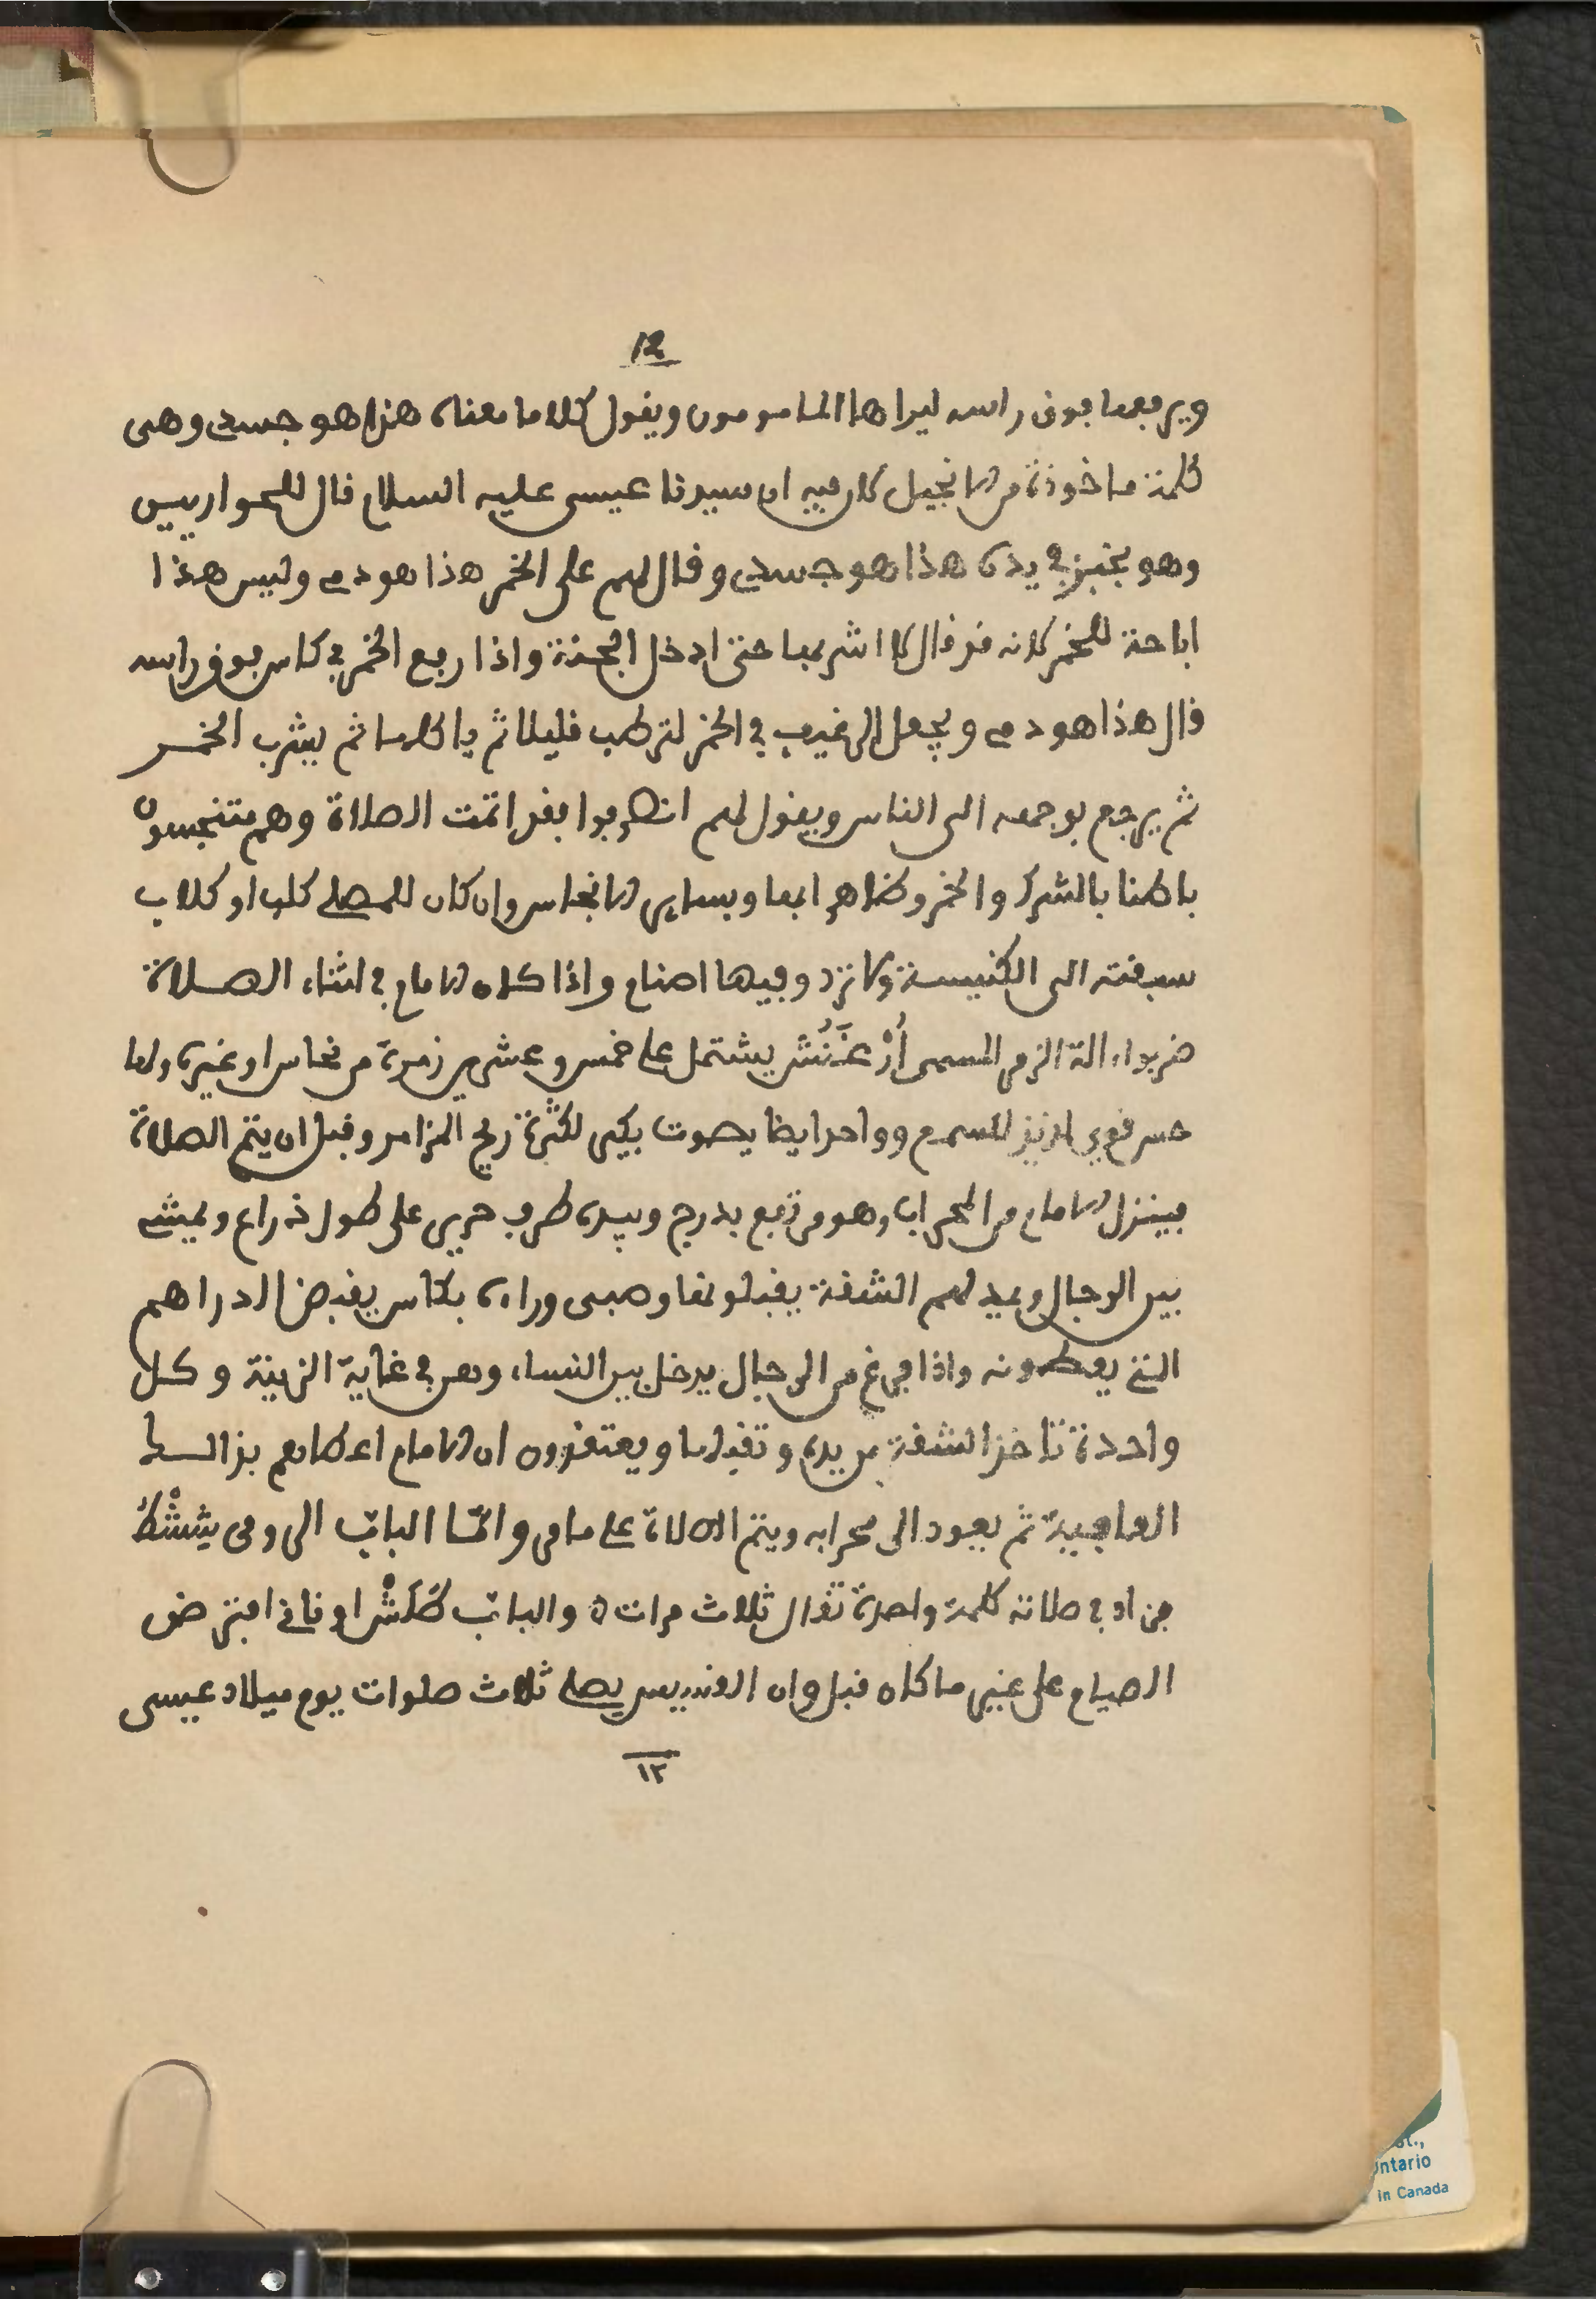 12
ويرفعها فوق راسه ليراها المامومون ويقول كلاما معناه هذا هو جسدي وهي
كلمة ماخوذة من الانجيل لان فيه ان سيدنا عيسى عليه السلام قال للحواريين
وهو بخبز في يده هذا هو جسدي وقال لهم على الخمر هذا هو دمي وليس هذا
اباحة للخمر لانه قد قال لا اشربها حتى ادخل الجنة واذا رفع الخمر في كاس فوق راسه
قال هذا هو دمي ويجعل الرغيف في الخمر لترطب قليلا ثم ياكلها ثم يشرب الخمر
ثم يرجع بوجهه الى الناس ويقول لهم انصرفوا فقد اتمت الصلاة وهم متنجسون
باطنا بالشرك والخمر وظاهرا بها وبساير الانجاس وان كان للمصلي كلب او كلاب
سبقته الى الكنيسة ولا ترد وفيها اصنام واذا كان الامام في اثناء الصلاة
ضربوا الة الزمر المسمى أرْغَنُش يشتمل على خمس وعشرين زمرة من نحاس او غيره ولها
حس قوي لذيذ للسمع وواحد ايظا بصوت يكبر لكثرة ريح المزامر وقبل ان يتم الصلاة
فينزل الامام من المحراب وهو مرتفع بدرج وبيده طرف حرير على طول ذراع ويمشي
بين الرجال ويمد لهم الشفة يقبلونها وصبي وراءه بكاس يقبض الدراهم
التي يعطونه واذا فرغ من الرجال يدخل بين النساء وهن في غاية الزينة وكل
واحدة تاخذ الشفة من يده وتقبلها ويعتقدون ان الامام اعطاهم بذالك
العافية ثم يعود الى محرابه ويتم الصلاة على ما مر واما الباب الرومي شِشْطُ
فزاد في صلاته كلمة واحدة تقال ثلاث مرات والباب كلَمَنْش او قاني افترض
الصيام على غير ما كان قبل وان القسيس يصلي ثلاث صلوات يوم ميلاد عيسى
١٢
Ontario
in Canada